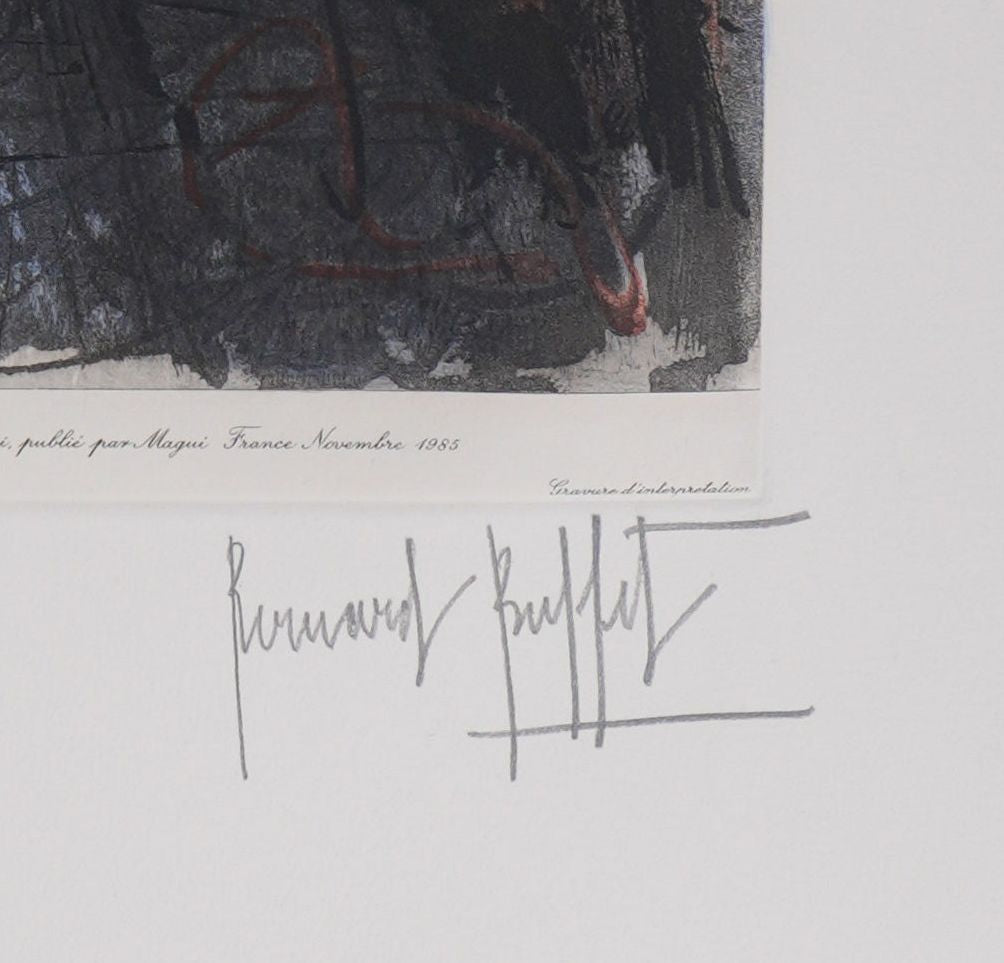 i, publié par Magui France Novembre 1985
Gravure d'interpretation
Bernard Buffet